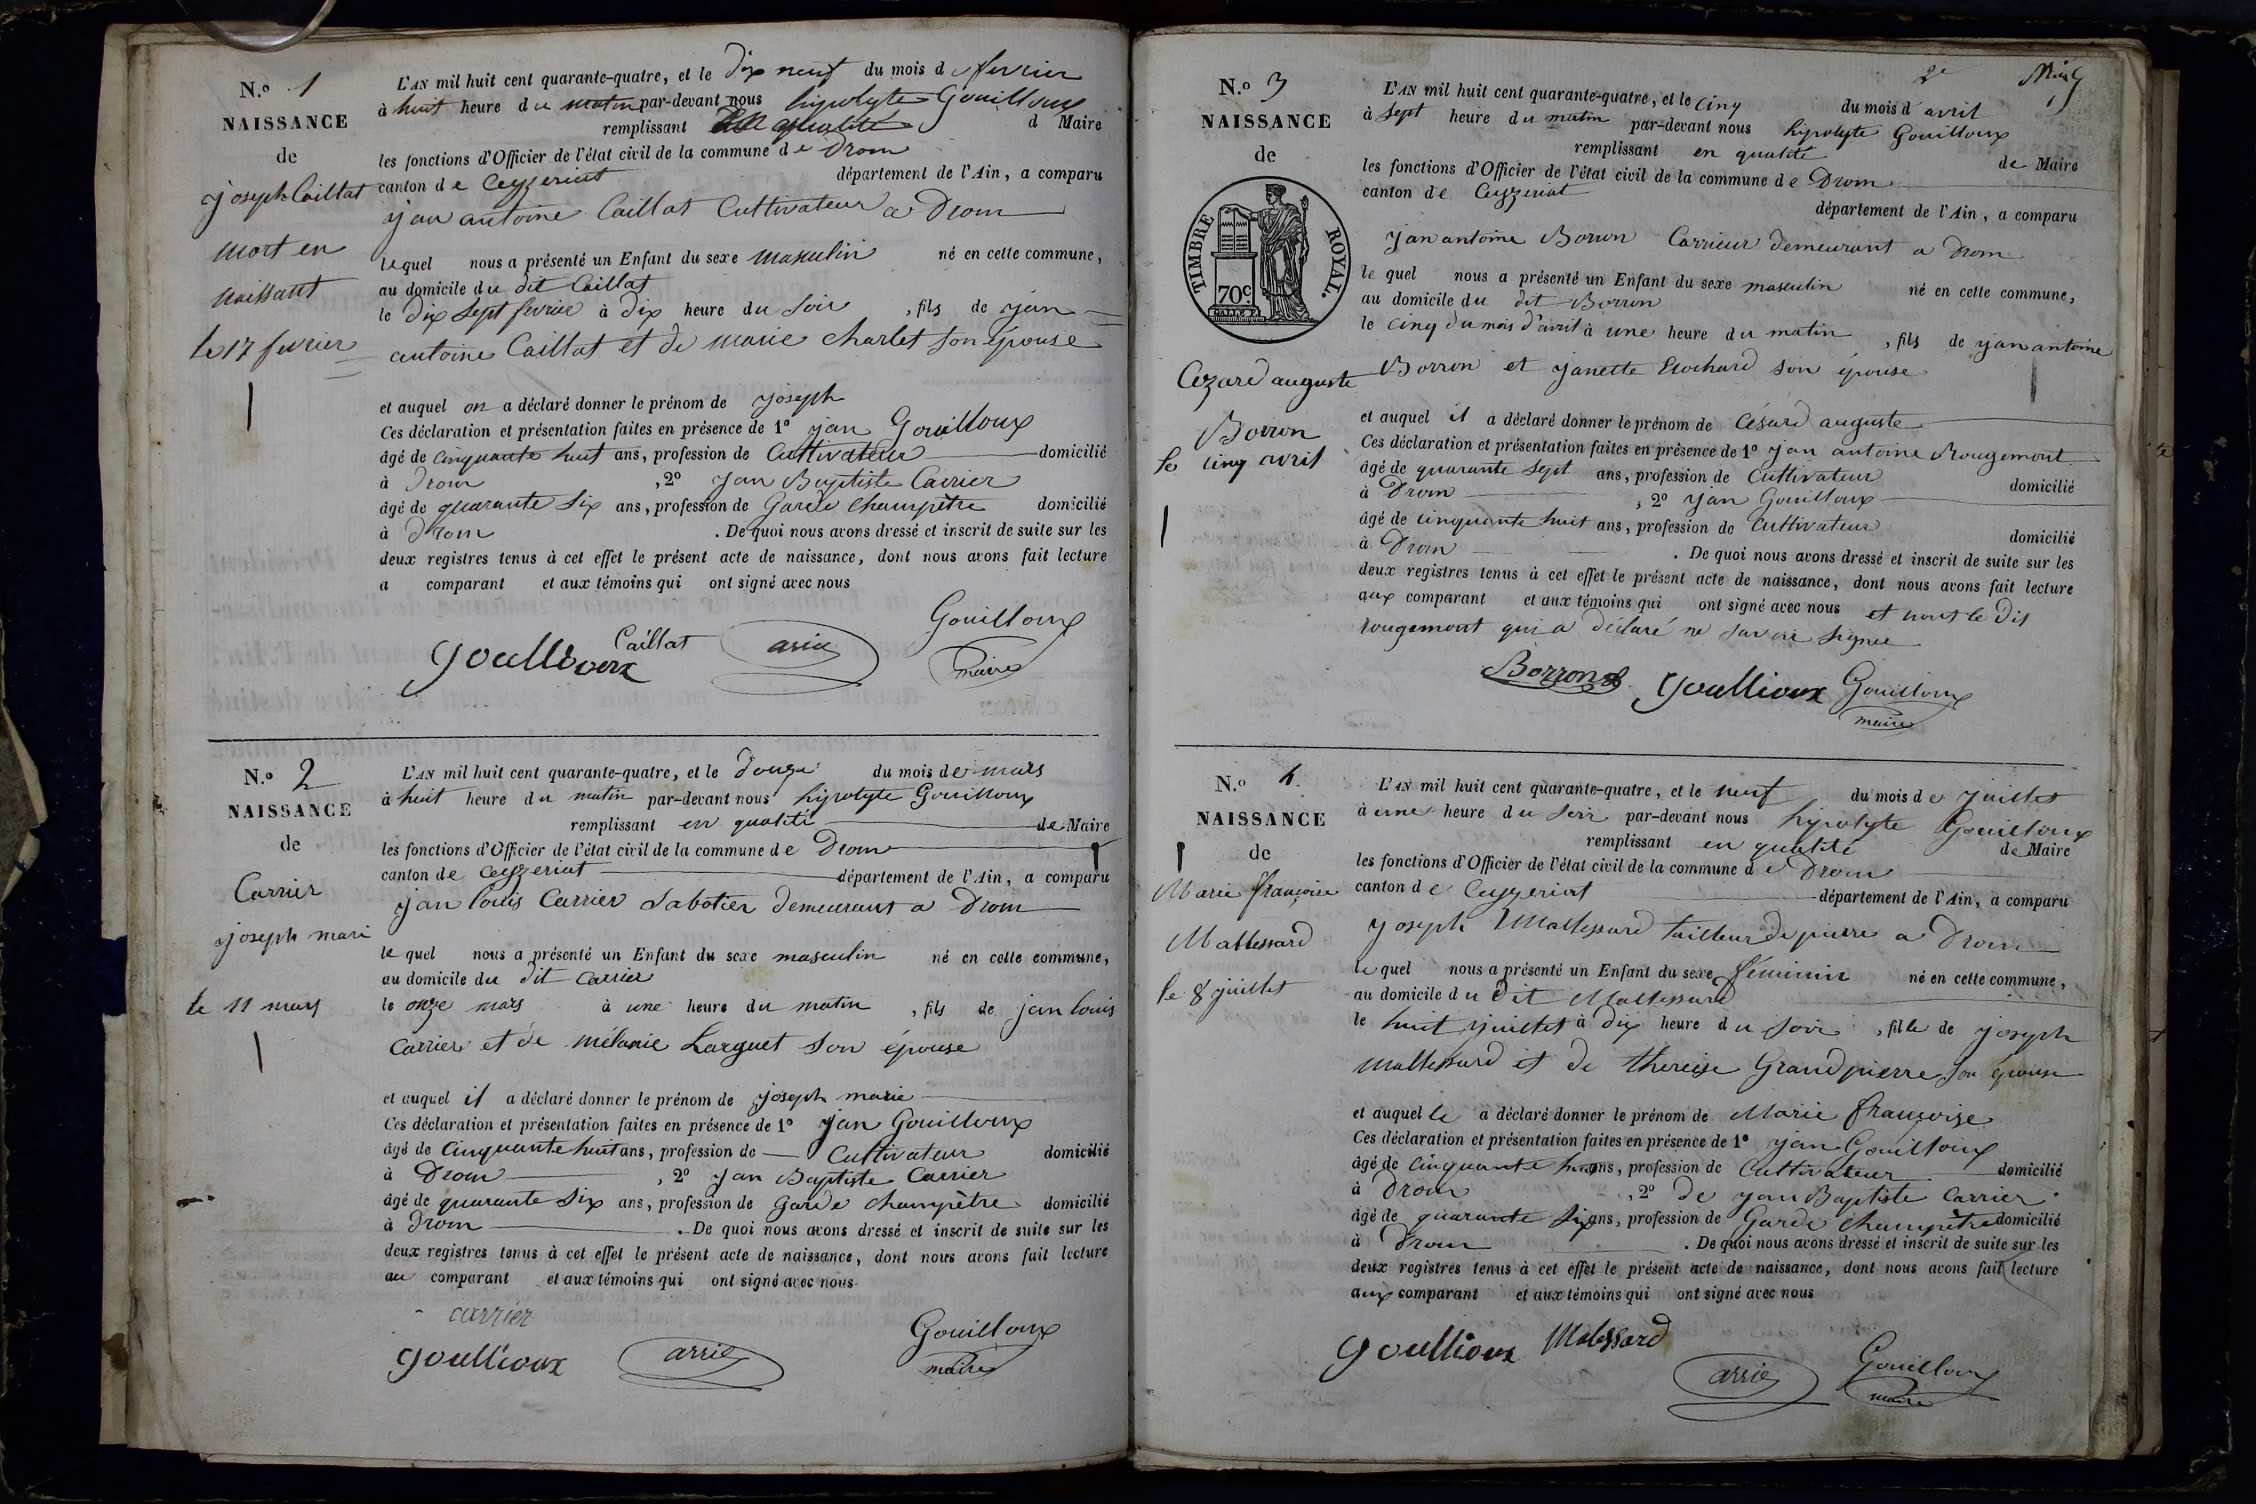 N.o 1
NAISSANCE
de
joseph Caillat
mort en
naissant
le 17 fevrier
L'AN mil huit cent quarante-quatre, et le dix neuf du mois de fevrier
à huit heure du matin par-devant nous hipolyte Gouilloux
remplissant en qualité d Maire
les fonctions d'Officier de l'état civil de la commune de Drom
canton de Ceyzeriat département de l'Ain, a comparu
jan antoine Caillat Cultivateur a Drom
lequel nous a présenté un Enfant du sexe masculin né en cette commune,
au domicile du dit Caillat
le dix sept fevrier à dix heure du soir, fils de jan
antoine Caillat et de marie charlet son épouse
et auquel on a déclaré donner le prénom de joseph
Ces déclaration et présentation faites en présence de 1o jan Gouilloux
âgé de cinquante huit ans, profession de Cultivateur domicilié
à Drom, 2o jan Baptiste Carrier
âgé de quarante six ans, profession de Garde champêtre domicilié
à Drom. De quoi nous avons dressé et inscrit de suite sur les
deux registres tenus à cet effet le présent acte de naissance, dont nous avons fait lecture
a comparant et aux témoins qui ont signé avec nous
Gouilloux
Caillat
maire
N.o 2
NAISSANCE
de
Carrier
joseph mari
le 11 mars
L'AN mil huit cent quarante-quatre, et le douze du mois de mars
à huit heure du matin par-devant nous hipolyte Gouilloux
remplissant en qualité de Maire
les fonctions d'Officier de l'état civil de la commune de Drom
canton de Ceyzeriat département de l'Ain, a comparu
jan louis Carrier Sabotier demeurant a Drom
le quel nous a présenté un Enfant du sexe masculin né en cette commune,
au domicile du dit Carrier
le onze mars à une heure du matin, fils de jan louis
Carrier et de mélanie Larguet son épouse
et auquel il a déclaré donner le prénom de joseph marie
Ces déclaration et présentation faites en présence de 1o jan Gouilloux
âgé de cinquante huit ans, profession de Cultivateur domicilié
à Drom, 2o jan Baptiste Carrier
âgé de quarante six ans, profession de Garde champêtre domicilié
à Drom. De quoi nous avons dressé et inscrit de suite sur les
deux registres tenus à cet effet le présent acte de naissance, dont nous avons fait lecture
au comparant et aux témoins qui ont signé avec nous
carrier
Gouilloux
maire
2e
N.o 3
NAISSANCE
de
TIMBRE ROYAL.
70c.
Cezard auguste
Borron
le cinq avril
L'AN mil huit cent quarante-quatre, et le cinq du mois d'avril
à sept heure du matin par-devant nous hipolyte Gouilloux
remplissant en qualité de Maire
les fonctions d'Officier de l'état civil de la commune de Drom
canton de Ceyzeriat département de l'Ain, a comparu
jan antoine Borron Carrieur demeurant a Drom
le quel nous a présenté un Enfant du sexe masculin né en cette commune,
au domicile du dit Borron
le cinq du mois d'avril à une heure du matin, fils de jan antoine
Borron et janette son épouse
et auquel il a déclaré donner le prénom de Césard auguste
Ces déclaration et présentation faites en présence de 1o jan antoine Rougemont
âgé de quarante sept ans, profession de Cultivateur domicilié
à Drom, 2o jan Gouilloux
âgé de cinquante huit ans, profession de Cultivateur domicilié
à Drom. De quoi nous avons dressé et inscrit de suite sur les
deux registres tenus à cet effet le présent acte de naissance, dont nous avons fait lecture
aux comparant et aux témoins qui ont signé avec nous et nont le dit
rougemont qui a déclaré ne savoir signer
Borron Gouilloux
maire
N.o 4
NAISSANCE
de
Marie françoise
Mallessard
le 8 juillet
L'AN mil huit cent quarante-quatre, et le neuf du mois de juillet
à une heure du soir par-devant nous hipolyte Gouilloux
remplissant en qualité de Maire
les fonctions d'Officier de l'état civil de la commune de Drom
canton de Ceyzeriat département de l'Ain, a comparu
joseph Mallessard tailleur de pierre a Drom
le quel nous a présenté un Enfant du sexe féminin né en cette commune,
au domicile du dit Mallessard
le huit juillet à dix heure du soir, fille de joseph
mallessard et de thereise Grandpierre son épouse
et auquel le a déclaré donner le prénom de Marie françoise
Ces déclaration et présentation faites en présence de 1o jan Gouilloux
âgé de cinquante huit ans, profession de Cultivateur domicilié
à Drom, 2o de jan Baptiste Carrier
âgé de quarante six ans, profession de Garde champêtre domicilié
à Drom. De quoi nous avons dressé et inscrit de suite sur les
deux registres tenus à cet effet le présent acte de naissance, dont nous avons fait lecture
aux comparant et aux témoins qui ont signé avec nous
Malessard
Gouilloux
maire